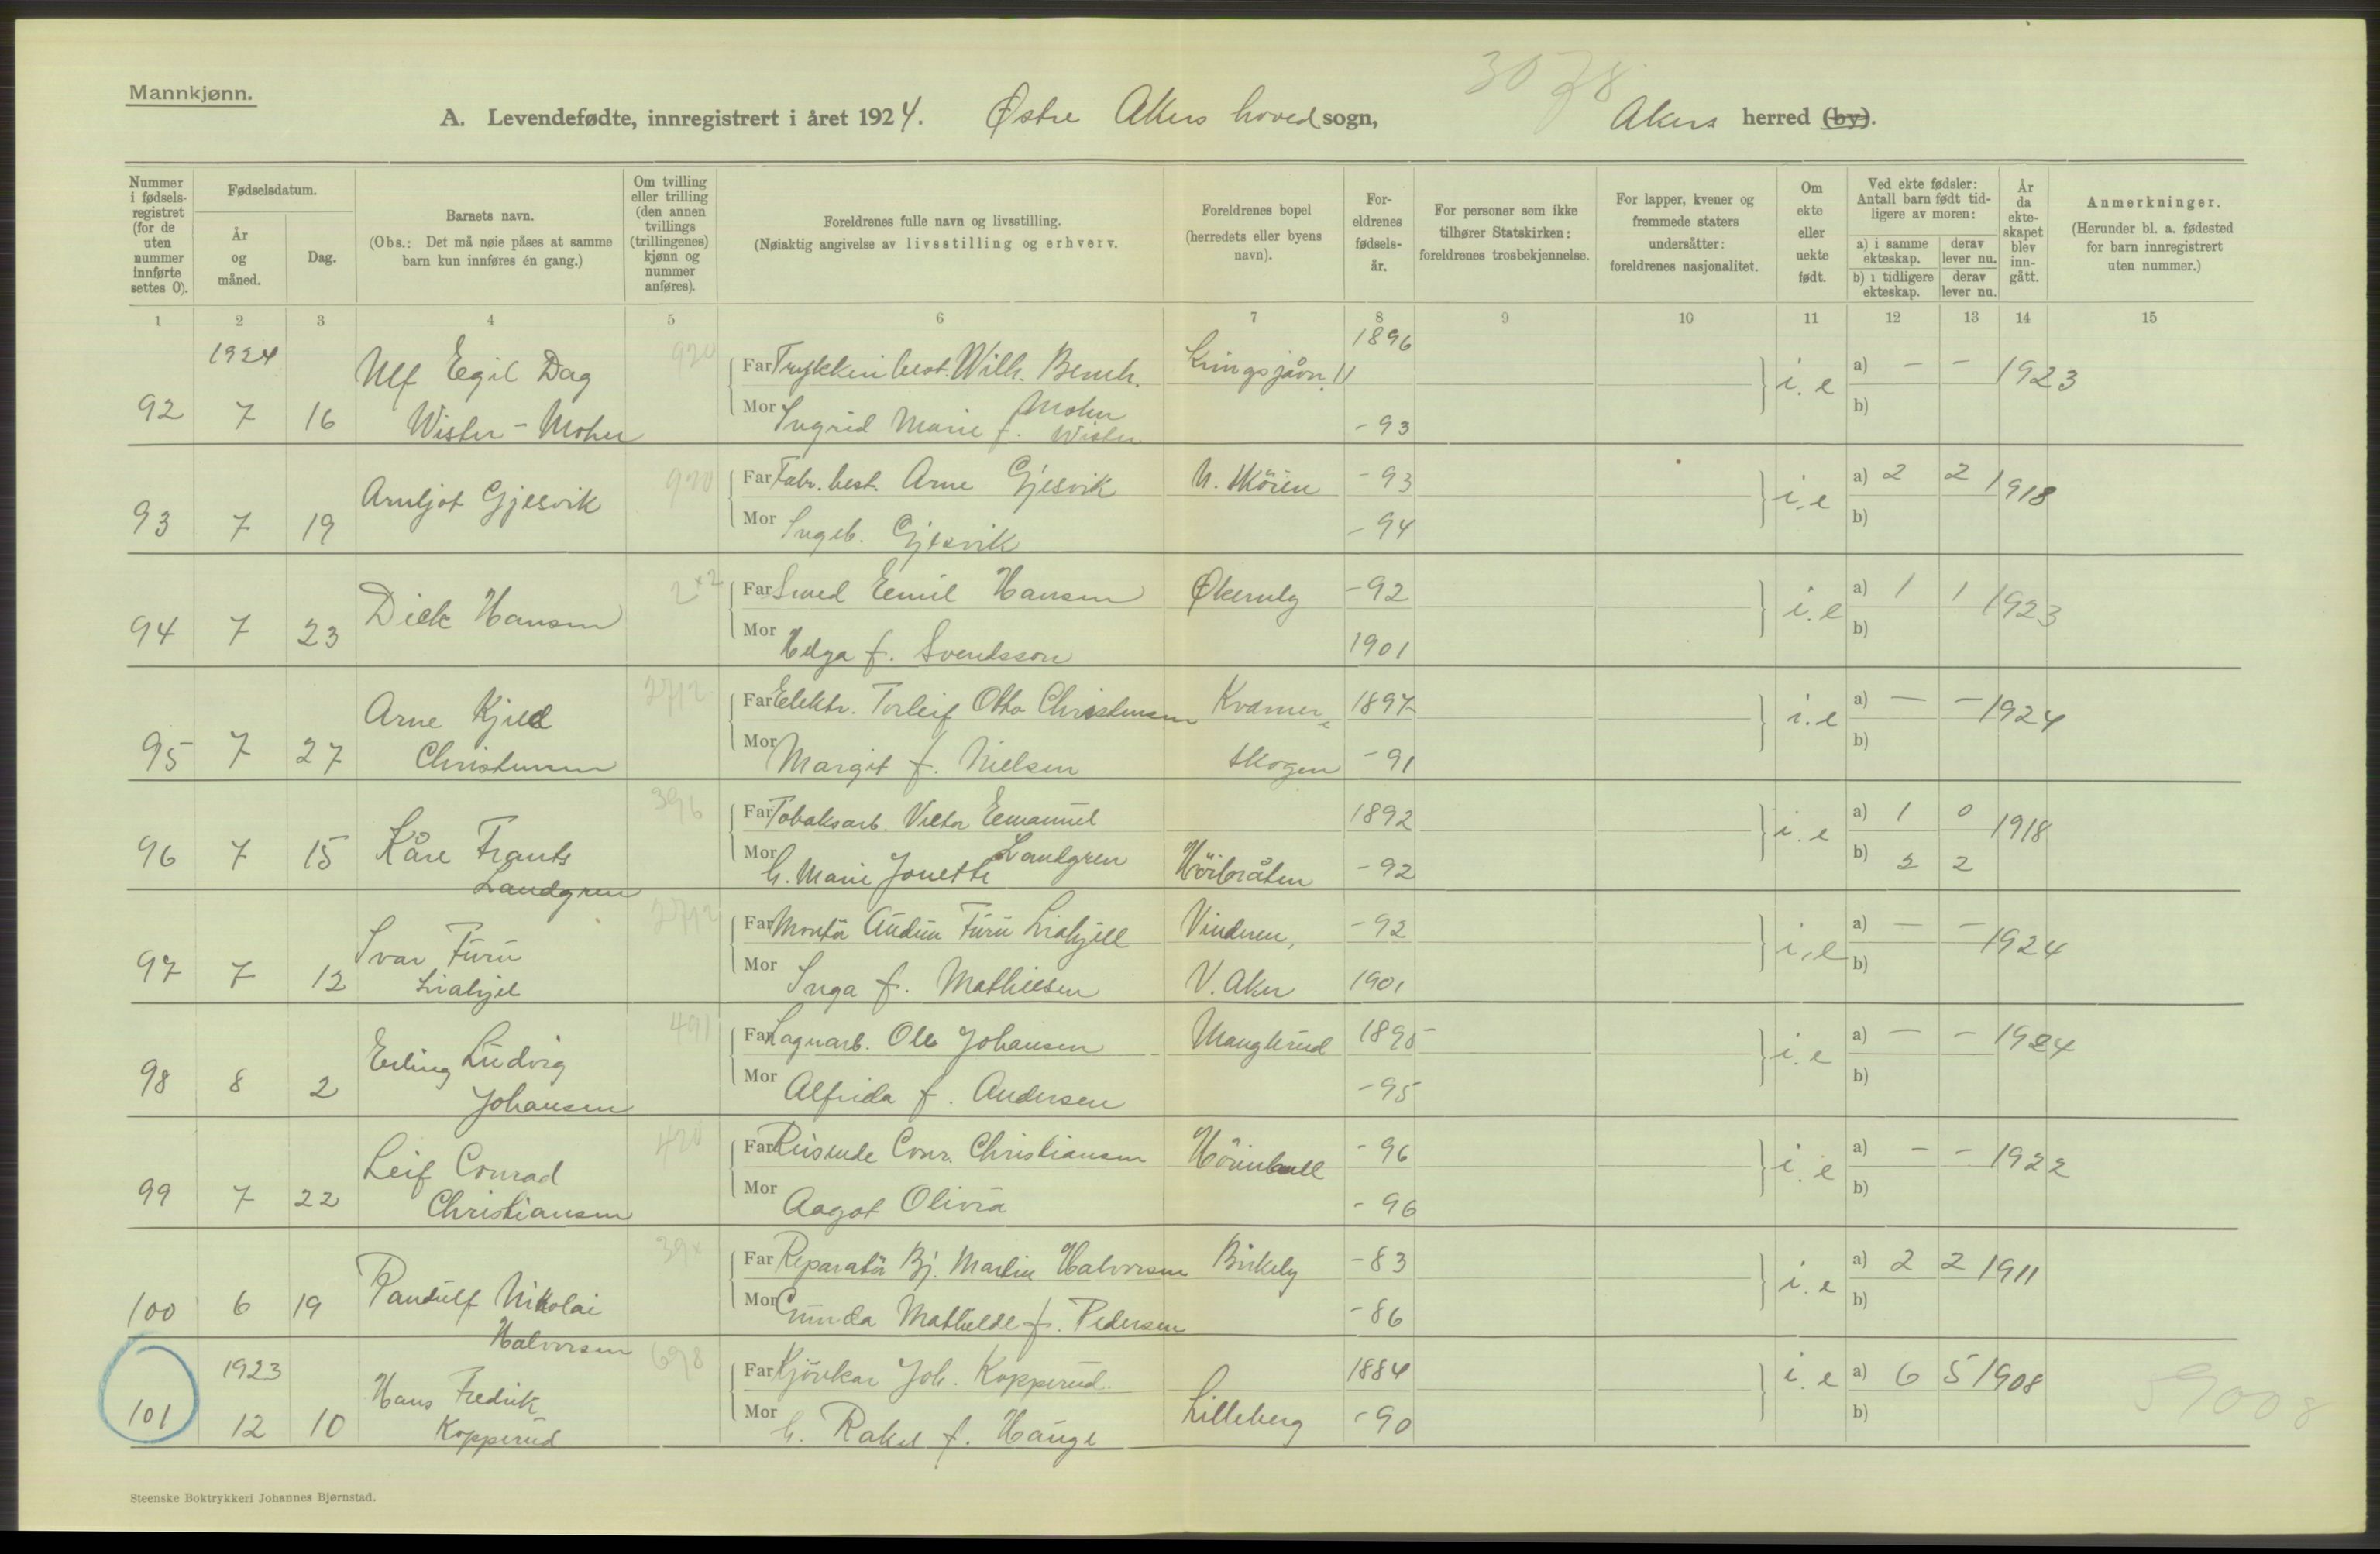 Mannkjønn.
3078
A. Levendefødte, innregistrert i året 1924. Østre Akers hoved sogn, Akers herred (by).
Nummer i fødsels-registret (for de uten nummer innførte settes 0).
Fødselsdatum.
År og måned.
Dag.
Barnets navn.
(Obs.: Det må nøie påses at samme barn kun innføres én gang.)
Om tvilling eller trilling (den annen tvillings (trillingenes) kjønn og nummer anføres).
Foreldrenes fulle navn og livsstilling.
(Nøiaktig angivelse av livsstilling og erhverv.
Foreldrenes bopel (herredets eller byens navn).
For-eldrenes fødsels-år.
For personer som ikke tilhører Statskirken: foreldrenes trosbekjennelse.
For lapper, kvener og fremmede staters undersåtter: foreldrenes nasjonalitet.
Om ekte eller uekte født.
Ved ekte fødsler: Antall barn født tid-ligere av moren:
a) i samme ekteskap. derav lever nu.
b) i tidligere ekteskap. derav lever nu.
År da ekte-skapet blev inn-gått.
Anmerkninger.
(Herunder bl. a. fødested for barn innregistrert uten nummer.)
1 2 3 4 5 6 7 8 9 10 11 12 13 14 15
1924 Ulf Egil Dag 920 Far Trykkeribest. Wilh. Bernh. 1896 i.e a) – – 1923
92 7 16 Wister-Mohn Mor Ingrid Marie f. Wister Mohn – 93 b)
93 7 19 Arnljot Gjesvik 920 Far Fabr. best. Arne Gjesvik N. Skøien – 93 i.e a) 2 2 1918
Mor Ingeb. Gjesvik – 94 b)
94 7 23 Dick Hansen Far Smed Emil Hansen Økernly – 92 i.e a) 1 1 1923
Mor Helga f. Svendsson 1901 b)
95 7 27 Arne Kjell 2712 Far Elektr. Torleif Otto Christensen Kværner 1897 i.e a) – – 1924
Christensen Mor Margit f. Nielsen skogen – 91 b)
96 7 15 Kåre Frants 396 Far Tobaksarb. Victor Emanuel 1892 i.e a) 1 0 1918
Landgren Mor h. Marie Jonette Landgren Høibråten – 92 b) 2 2
97 7 12 Ivar Furu 2712 Far Montør Audun Furu Liahjell Vinderen, – 92 i.e a) – – 1924
Liahjel Mor Inga f. Mathiesen V. Aker 1901 b)
98 8 2 Erling Ludvig 491 Far Lagerarb. Ole Johansen Manglerud 1895 i.e a) – – 1924
Johansen Mor Alfrida f. Andersen – 95 b)
99 7 22 Leif Conrad 420 Far Reisende Conr. Christiansen – 96 i.e a) – – 1922
Christiansen Mor Aagot Olivia – 96 b)
100 6 19 Randulf Nikolai Far Reparatør Bj. Martin Halvorsen Birkely – 83 i.e a) 2 2 1911
Halvorsen Mor Gunda Mathilde f. Pedersen – 86 b)
1923 Hans Fredrik 698 Far Kjørekar Joh. Kopperud. 1884 i.e a) 6 5 1908
101 12 10 Kopperud Mor h. Rakel f. Hauge Lilleberg – 90 b)
59008
Steenske Boktrykkeri Johannes Bjørnstad.